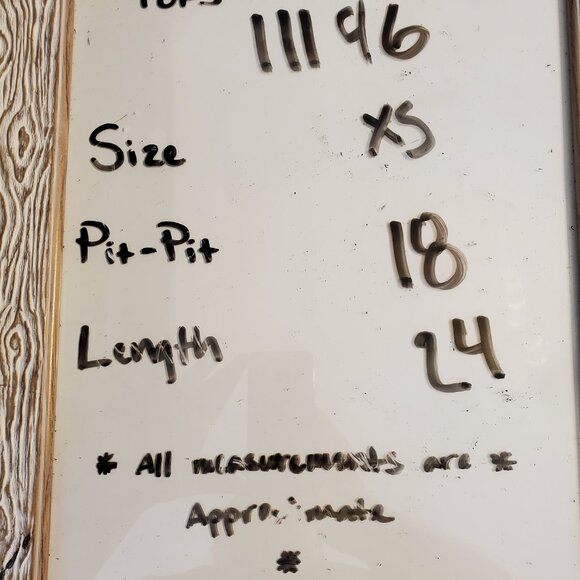 Tops 11196
Size XS
Pit-Pit 18
Length 24
* All measurements are *
Approximate
*